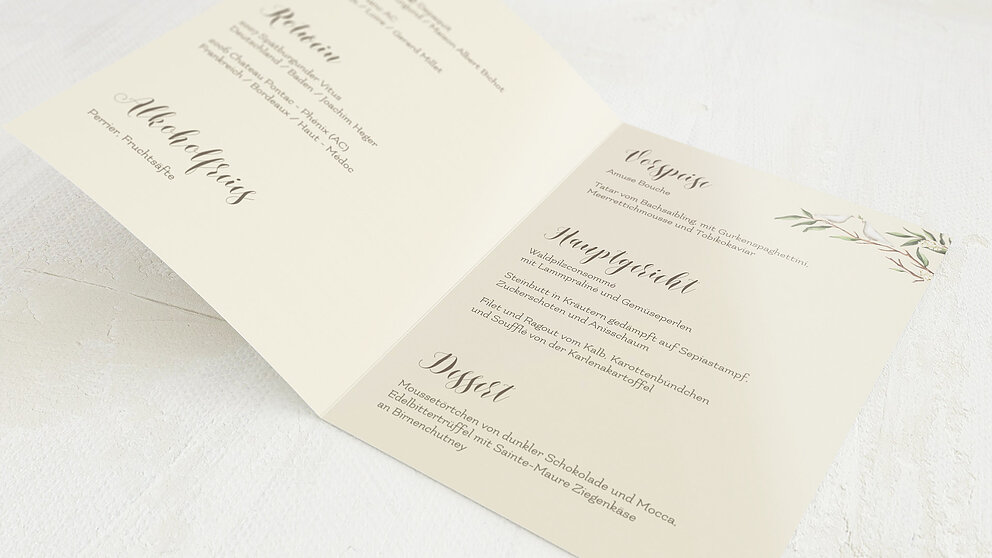 Albert Bichot
/ Gerard Millet
Rotwein
2007 Spätburgunder Vitus
Deutschland / Baden / Joachim Heger
2006 Chateau Pontac - Phenix (AC)
Frankreich / Bordeaux / Haut - Medoc
Alkoholfreies
Perrier, Fruchtsäfte
Vorspeise
Amuse Bouche
Tatar vom Bachsaibling, mit Gurkenspaghettini,
Meerrettichmousse und Tobikokaviar
Hauptgericht
Waldpilzconsommé
mit Lammpraline und Gemüseperlen
Steinbutt in Kräutern gedämpft auf Sepiastampf,
Zuckerschoten und Anisschaum
Filet und Ragout vom Kalb, Karottenbündchen
und Soufflé von der Karlenakartoffel
Dessert
Moussetörtchen von dunkler Schokolade und Mocca,
Edelbittertrüffel mit Sainte-Maure Ziegenkäse
an Birnenchutney